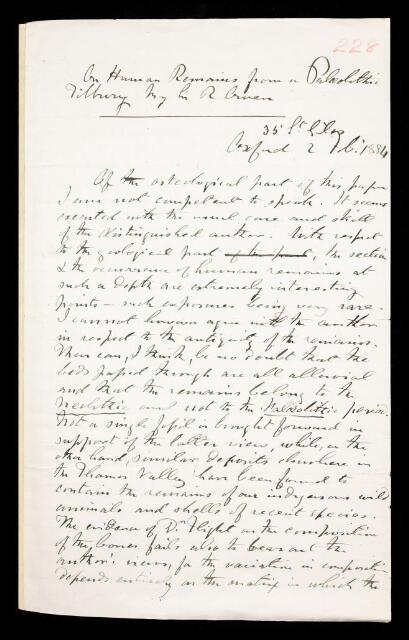 228
On Human Remains from a Palæolithic
Tilbury by Sir R Owen
35 St Giles
Oxford 2 Feb. 1884
Of the osteological part of this paper
I am not competent to speak. It seems
executed with the usual care and skill
of the distinguished author. With respect
to the geological part of the paper, the section
& the occurrence of human remains at
such a depth are extremely interesting
points – such exposures being very rare.
I cannot however agree with the author
in respect to the antiquity of the remains.
There can, I think, be no doubt that the
beds passed through are all alluvial
and that the remains belong to the
Neolithic and not to the Palæolithic period.
Not a single fossil is brought forward in
support of the latter view, while, on the
other hand, similar deposits elsewhere in
the Thames Valley have been found to
contain the remains of our indigenous wild
animals and shells of recent species.
The evidence of Dr. Flight on the composition
of the bones fails also to bear out the
author's views, for the variation in composition
depends entirely on the matrix in which the